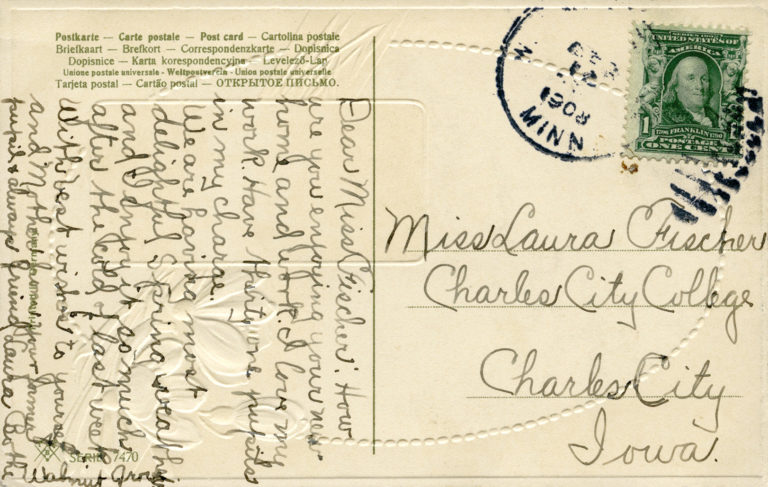 Postkarte — Carte postale — Post card — Cartolina postale
Briefkaart — Brefkort — Correspondenzkarte — Dopisnica
Dopisnice — Karta korespondencyjna — Levelező-Lap
Unione postale universale - Weltpostverein - Union postale universelle
Tarjeta postal — Cartão postal — ОТКРЫТОЕ ПИСЬМО.
Dear Miss Fischer: How
are you enjoying your new
home and work. I love my
work. Have thirty one pupils
in my charge.
We are having most
delightful Spring weather
and I enjoy it so much
after the cold of last week
With best wishes to yourself
and Mother your
pupil & always friend Laura
Walnut Grove
SERIE 7470
MINN
1908
SERIES 1902
UNITED STATES OF
AMERICA
1
FRANKLIN
POSTAGE
ONE CENT
Miss Laura Fischer
Charles City College
Charles City
Iowa.